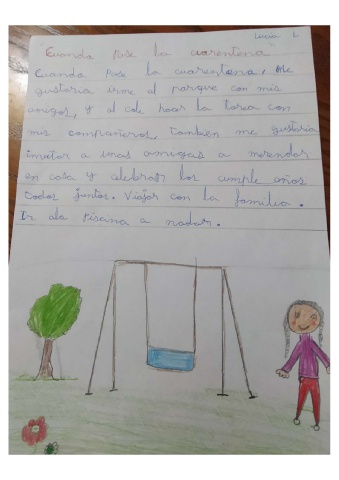 Lucía L
Cuando pase la cuarentena
Cuando pase la cuarentena, Me
gustaria irme al parque con mis
amigos, y al cole hacer la tarea con
mis compañeros, tambien me gustaria
invitar a unas amigas a merendar
en casa y celebrar los cumple años
todos juntos. Viajar con la familia.
Ir ala piscina a nadar.